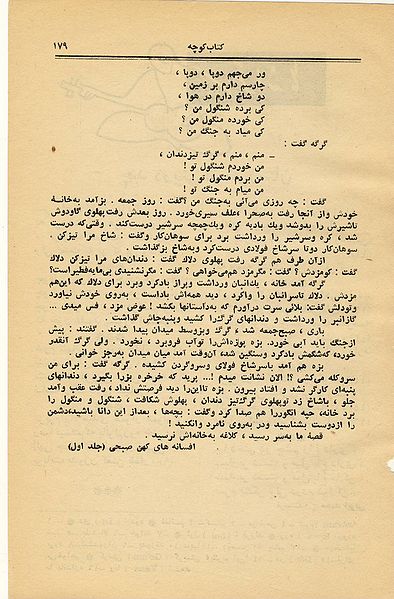 کتاب کوچه ۱۷۹
ور می‌جهم دوپا ، دوپا ،
چارسم دارم بر زمین ،
دو شاخ دارم در هوا ،
کی برده شنگول من ؟
کی خورده منگول من ؟
کی میاد به جنگ من ؟
گرگه گفت :
ــ منم ، منم ، گرگ تیزدندان ،
من خوردم شنگول تو !
من بردم منگول تو !
من میام به جنگ تو !
گفت : چه روزی می‌آئی به‌جنگ من ؟گفت : روز جمعه . بزآمد به‌خانهٔ
خودش واز آنجا رفت به‌صحرا ؛علف سیری‌خورد . روز بعدش رفت‌پهلوی گاودوش
تاشیرش را بدوشد ویک بادیه کره ویک‌چمچه سرشیر درست‌کند . وقتی‌که درست
شد ، کره وسرشیر را ورداشت برد برای سوهان‌کار وگفت : شاخ مرا تیزکن .
سوهان‌کار دوتا سرشاخ فولادی درست‌کرد وبه‌شاخ بزگذاشت .
ازآن طرف هم گرگه رفت پهلوی دلاك گفت : دندان‌های مرا تیزکن دلاك
گفت : کومزدش ؟ گفت : مگرمزد هم‌می‌خواهی ؟ گفت : مگرنشنیدی بی‌مایه‌فطیراست؟
گرگه آمد خانه ، یك‌انبان ورداشت وبراز بادکرد وبرد برای دلاك که این‌هم
مزدش . دلاك تاسرانبان را واکرد ، دید همه‌اش باداست ، به‌روی خودش نیاورد
وتودلش گفت: بلائی سرت درآورم که به‌داستانها بکشد ! عوض مزد ، فس میدی ...
گازانبر را ورداشت و دندانهای گرگ‌را کشید وپنبه‌جاش گذاشت .
باری ، صبح‌جمعه شد ، گرگ وبزوسط میدان پیدا شدند . گفتند : پیش
ازجنگ باید آبی خورد. بزه پوزه‌اش‌را توآب فروبرد ، نخورد . ولی گرگ آنقدر
خورده‌که‌شکمش بادکرد وسنگین شد، آن‌وقت آمد میان میدان به‌رجز خوانی .
بزه هم آمد باسرشاخ فولادی وسروگردن کشیده . گرگه گفت : برای من
سروکله می‌کشی ؟! الان نشانت میدم !... پرید که خرخره بزرا بگیر ، دندانهای
پنبه‌ای کارگر نشد و افتاد بیرون . بزه تااین‌را دید فرصتش نداد ، رفت عقب وآمد
جلو ، باشاخ زد توپهلوی گرگ‌تیز دندان ، پهلوش شکافت ، شنگول و منگول را
برد خانه، حبه انگوررا هم صدا کرد وگفت : بچه‌ها ، بعداز این دانا باشید،دشمن
را ازدوست بشناسید ودر به‌روی نامرد وانکنید !
قصهٔ ما به‌سر رسید ، کلاغه به‌خانه‌اش نرسید .
افسانه های کهن صبحی (جلد اول)